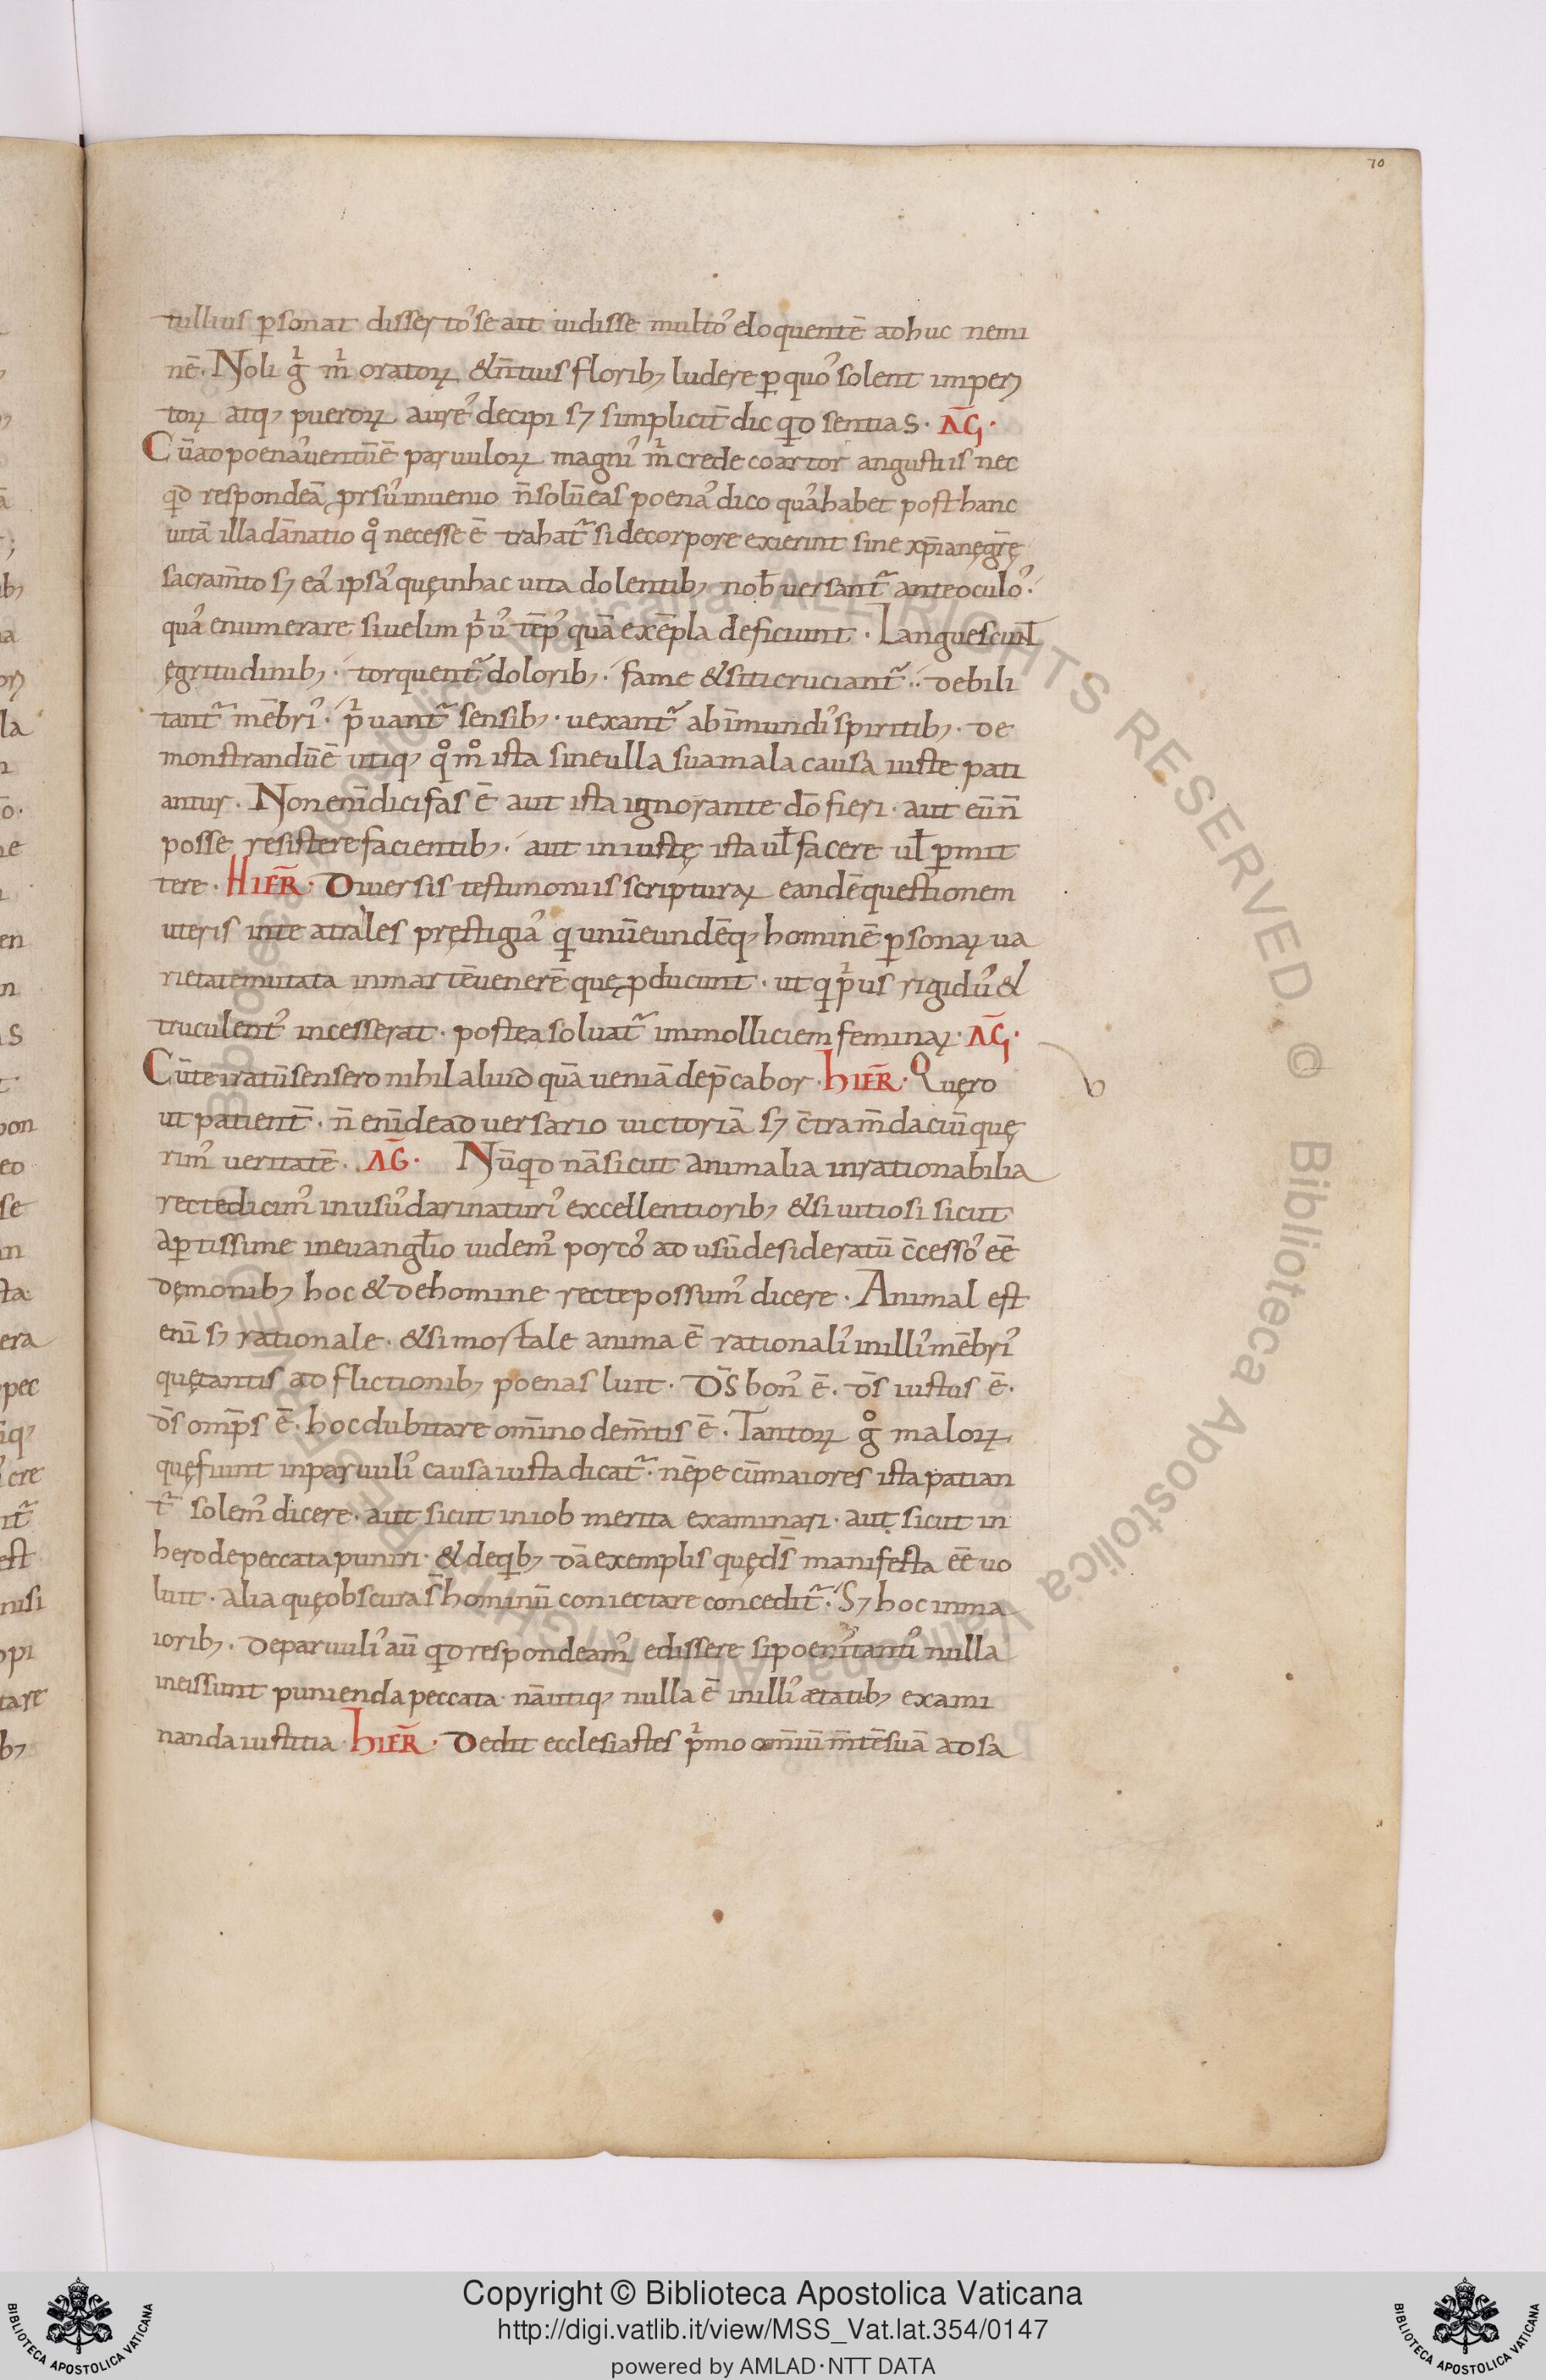 70
tullius psonat disser to᾽ se ait uidisse multo᾽ eloquentē adhuc nemi
nē. Noli g̊ m̊ oratoꝝ & ñtiuis floribꝫ ludere ꝑ quo᾽ solent imperi
toꝝ atqꝫ pueroꝝ aure᾽ decipi sꝫ simplicit̄ dic qd sentias. AḠ.
Cū ad poena᾽ uentū ē paruuloꝝ magni᾽ m̊ crede coartor angustiis nec
qd respondeā prsu᾽ inuenio n̄ solū eas poena᾽ dico qua᾽ habet post hanc
uitā illa dānatio q̊ necesse ē trahat᷑ si de corpore exierint sine xp̄ianę gr̄ę
sacram̄to sꝫ ea᾽ ipsa᾽ quę in hac uita dolentibꝫ nob̄ uersant᷑ ante oculo᾽.
qua᾽ enumerare si uelim p̊u᾽ tēp᾽ quā exēpla deficiunt. Languescunt
ęgritudinibꝫ. torquent᷑ doloribꝫ. fame & siti cruciant᷑. debili
tant᷑ mēbri᾽. p̊uant᷑ sensibꝫ. uexant᷑ ab īmundi᾽ spiritibꝫ. de
monstrandū ē utiqꝫ q̊m̊ ista sine ulla sua mala causa iuste pati
antur. Non enī dici fas ē aut ista ignorante dō fieri. aut eū n̄
posse resistere facientibꝫ. aut iniustę ista ul̄ facere ul̄ ꝑmit
tere. HIER̄. Diuersis testimoniis scripturaꝝ eandē questionem
uteris inte atrales pręstigia᾽ q unū eundēqꝫ hominē ꝑsonaꝝ ua
rietate mutata in martē uenerē quę ꝓducunt. ut q p̊us rigidu᾽ &
truculent᾽ incesserat. postea soluat᷑ in molliciem feminaꝝ. AḠ.
Cū te iratū sensero nihil aliud quā ueniā dep̄cabor. hIER̄. Quęro
ut patient̄. n̄ enī de aduersario uictoriā sꝫ c̄tra m̄daciū quę
rim᾽ ueritatē. AḠ. Nūqd nā sicut animalia inrationabilia
recte dicim᾽ in usu᾽ dari naturi᾽ excellentioribꝫ & si uitiosi sicut
aꝑtissime in euangl̄io uidem᾽ porco᾽ ad usū desideratū c̄cesso᾽ eē
dęmonibꝫ hoc & de homine recte possum᾽ dicere. Animal est
enī sꝫ rationale. & si mortale anima ē rationali᾽ in illi᾽ mēbri᾽
quę tantis adflictionibꝫ poenas luit. DS̄ bon᾽ ē. dſ̄ iustus ē.
dſ̄ omp̄s ē. hoc dubitare om̄ino dem̄tis ē. Tantoꝝ g̊ maloꝝ
quę fiunt in paruuli᾽ causa iusta dicat᷑. nēpe cū maiores ista patian
t᷑ solem᾽ dicere. aut sicut in iob merita examinari. aut sicut in
herode peccata puniri. & de qbꝫ dā exemplis quę dſ̄ manifesta eē uo
luit. alia quę obscura s̄ hominū coniectare concedit᷑. Sꝫ hoc in ma
ioribꝫ. de paruuli᾽ aū qd respondeam᾽ edissere si poeni᾽ tanti᾽ nulla
in eis sunt punienda peccata. nā utiqꝫ nulla ē in illi᾽ ætatibꝫ exami
nanda iustitia. hIER̄. Dedit ecclesiastes p̊mo om̄iū m̄tē suā ad sa
Copyright © Biblioteca Apostolica Vaticana
http://digi.vatlib.it/view/MSS_Vat.lat.354/0147
powered by AMLAD·NTT DATA
BIBLIOTECA APOSTOLICA VATICANA
BIBLIOTECA APOSTOLICA VATICANA